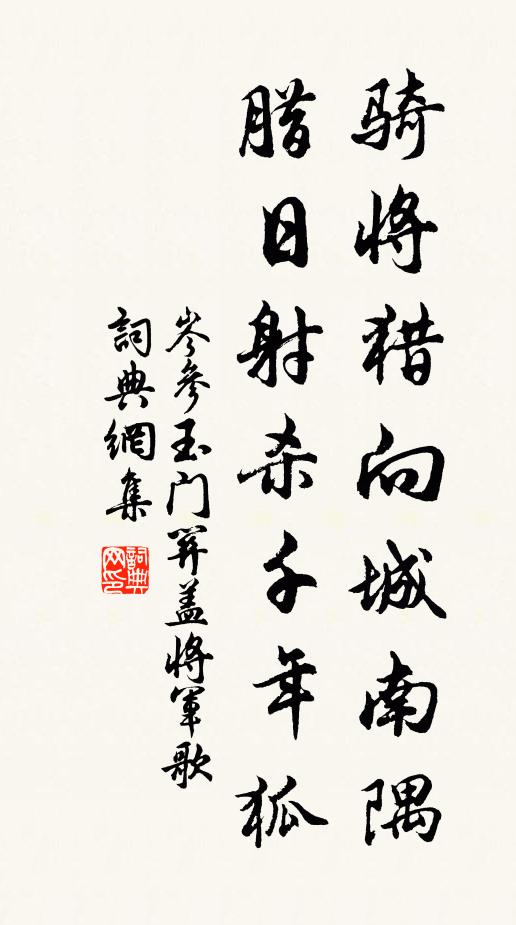 骑将猎向城南隅
腊日射杀千年狐
岑参玉门关盖将军歌
詞典網集
詞典
网印